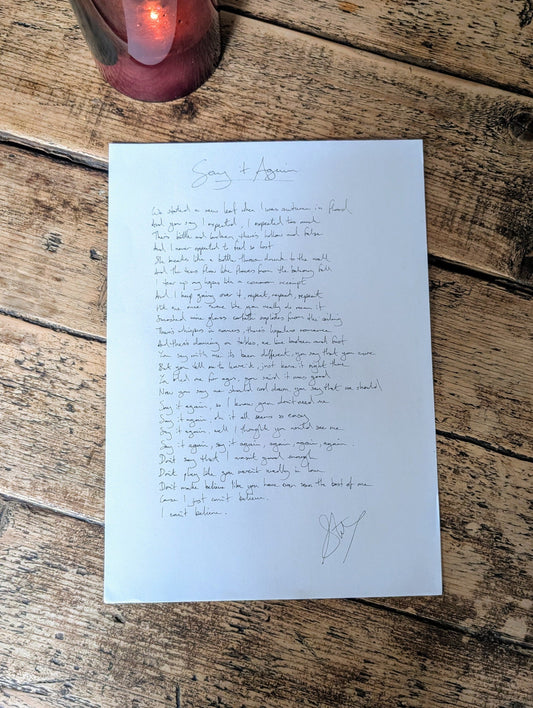 Say it Again
We started a new leaf when I was autumn in flood
And you say I expected, I expected too much
There's bottle and broken, there's hollow and false
And I never expected to feel so lost
like a bottle thrown drunk to the wall
And the tears flow like flowers from the balcony falls
I tear up my hopes like a receipt
And I keep going over it, repeat, repeat, repeat
me once twice like you really do mean it
Smashed wine glasses confetti explodes from the ceiling
There's whispers in corners, there's hopeless romance
And there's dancing on tables, we love broken and fast
You say with me its been different, you say that you care
But you tell me to leave it, just leave it right there
me for ages, you said it was good
Now you say we should cool down, you say that we should
Say it again, I know you don't need me
Say it again, oh it all seems so easy
Say it again, well I thought you would see me
Say it again, say it again, again, again, again.
Dont say that I wasnt good enough
Dont play like you weren't really in love
Don't make believe like you have ever seen the best of me
Cause I just can't believe.
I can't believe.